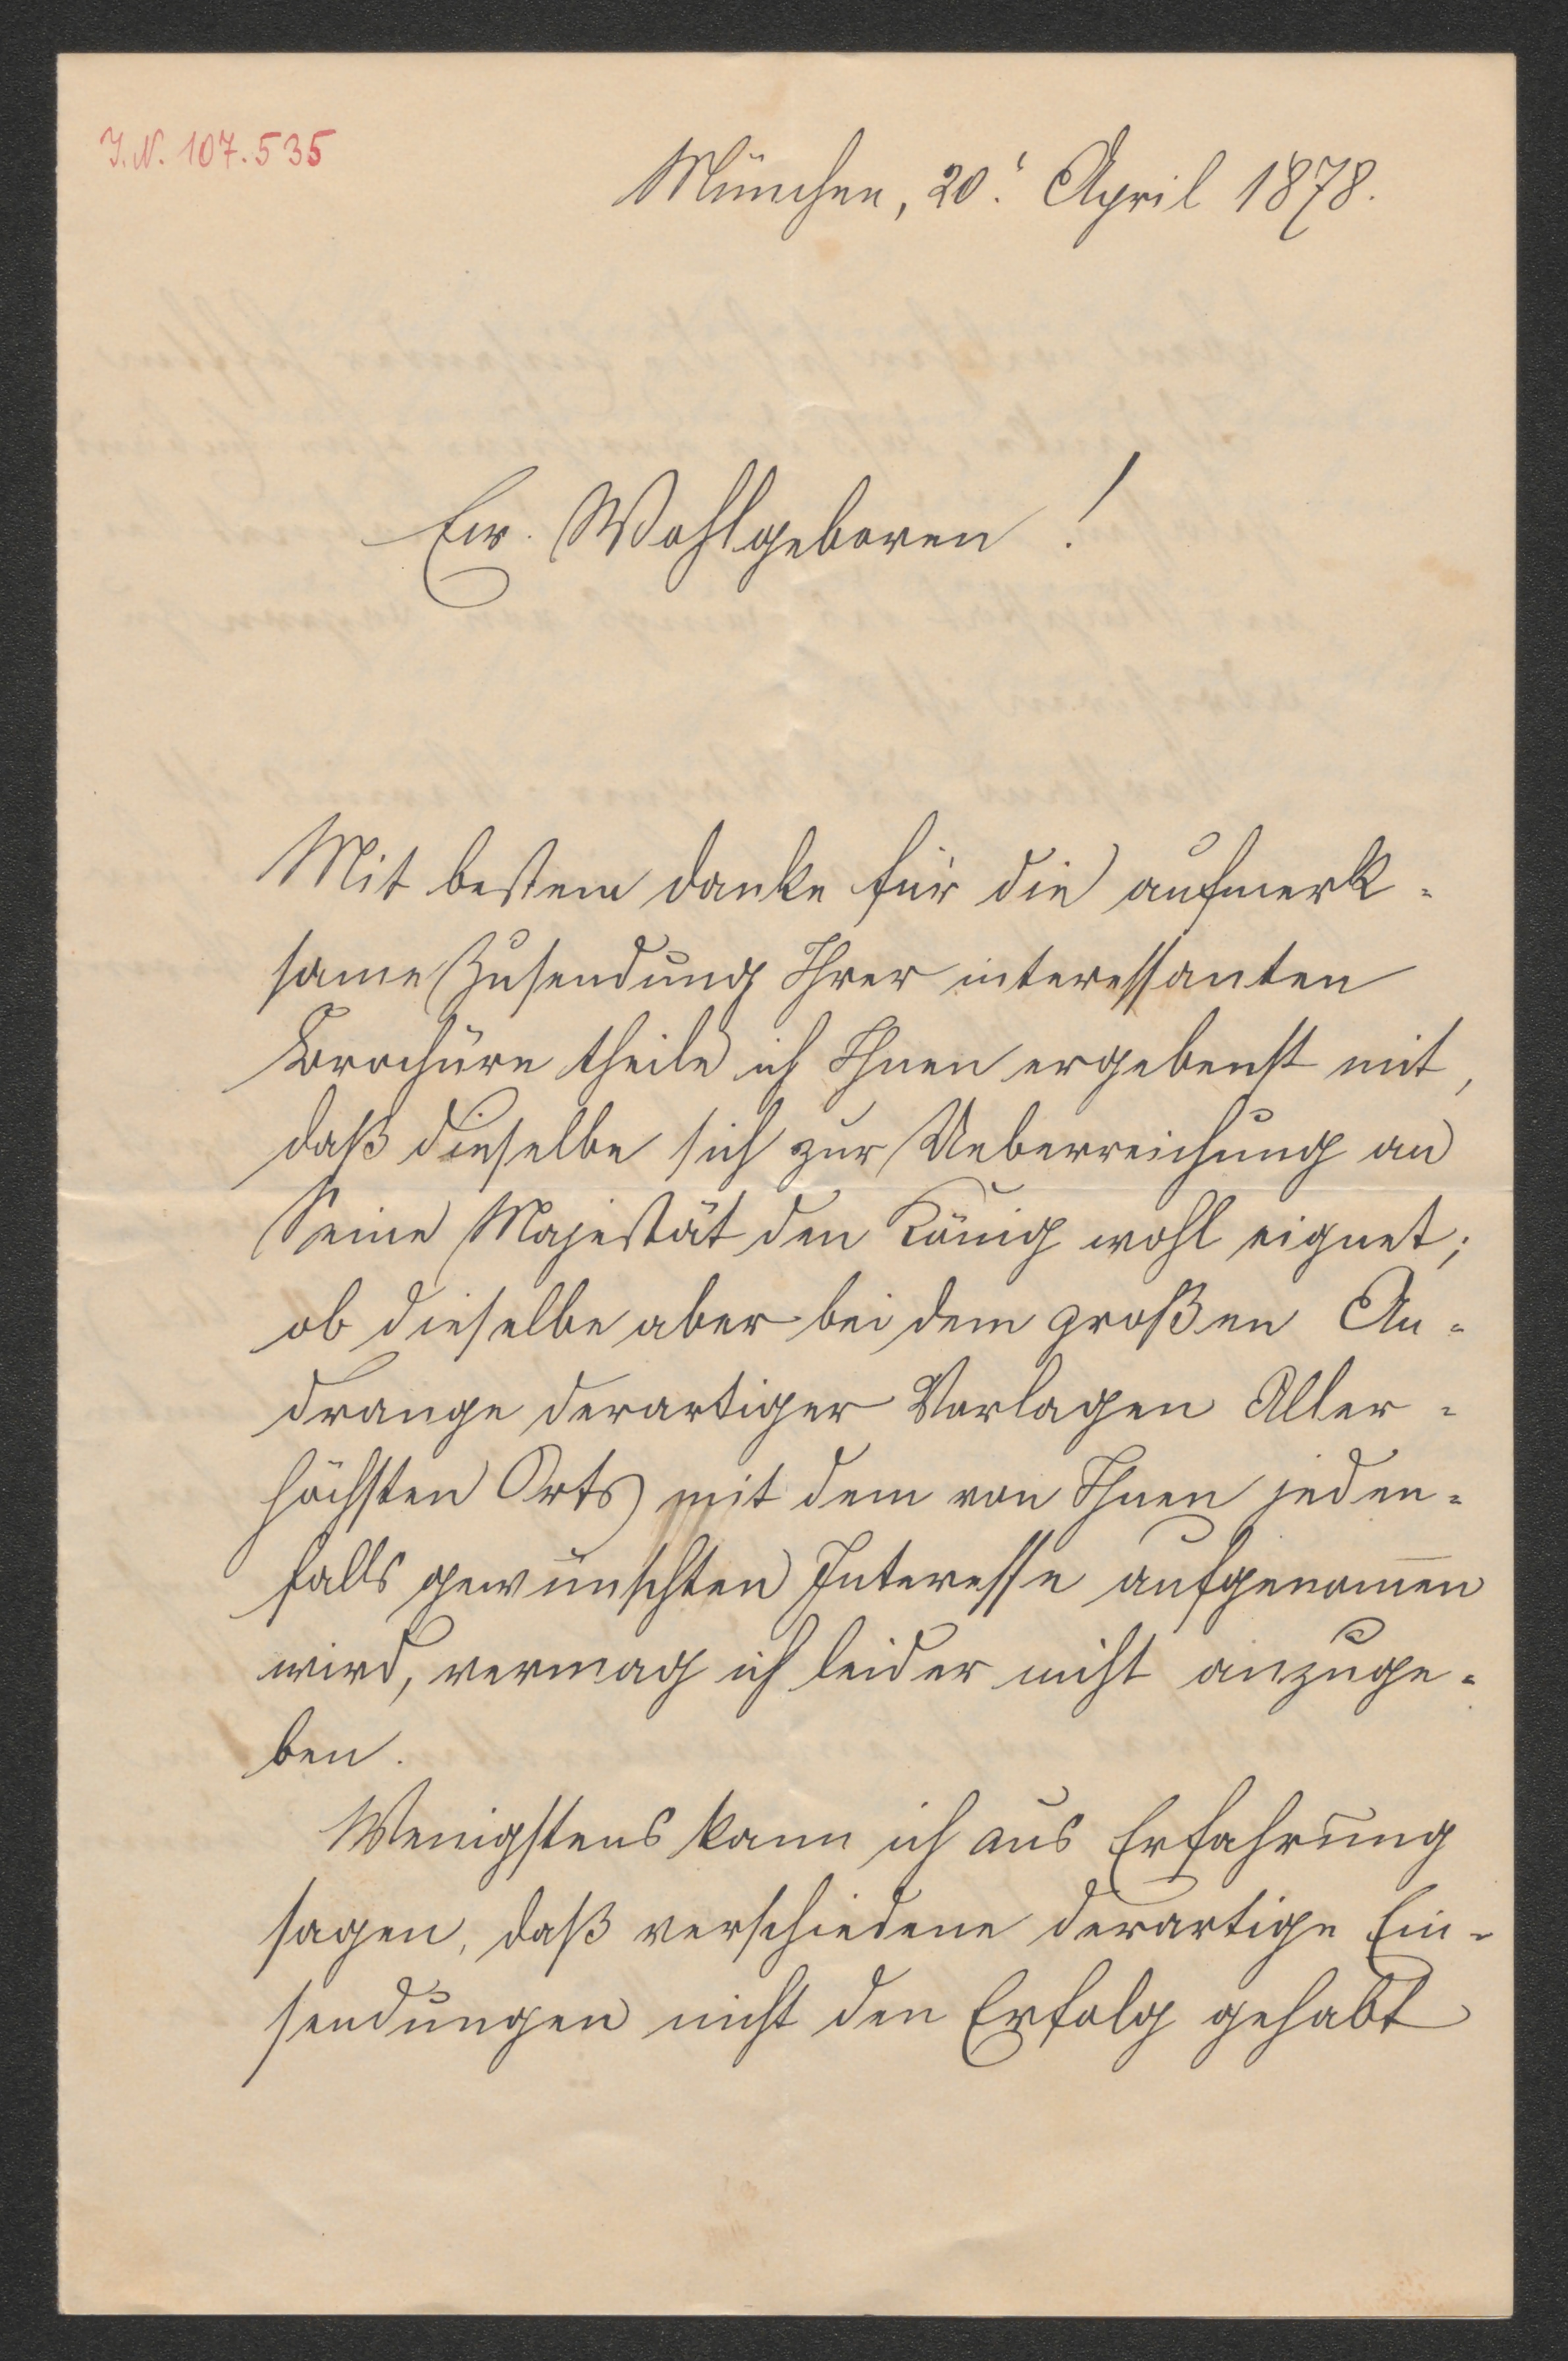 J.N. 107.535
München, 20. April 1878.
Ew. Wohlgeboren!
Mit bestem Danke für die aufmerk-
same Zusendung Ihrer interessanten
Brochüre theile ich Ihnen ergebenst mit,
daß dieselbe sich zur Ueberreichung an
Seine Majestät den König wohl eignet;
ob dieselbe aber bei dem großen An-
drange derartiger Vorlagen Aller-
höchsten Orts mit dem von Ihnen jeden-
falls gewünschten Interesse aufgenom̅en
wird, vermag ich leider nicht anzuge-
ben.
Wenigstens kann ich aus Erfahrung
sagen, daß verschiedene derartige Ein-
sendungen nicht den Erfolg gehabt